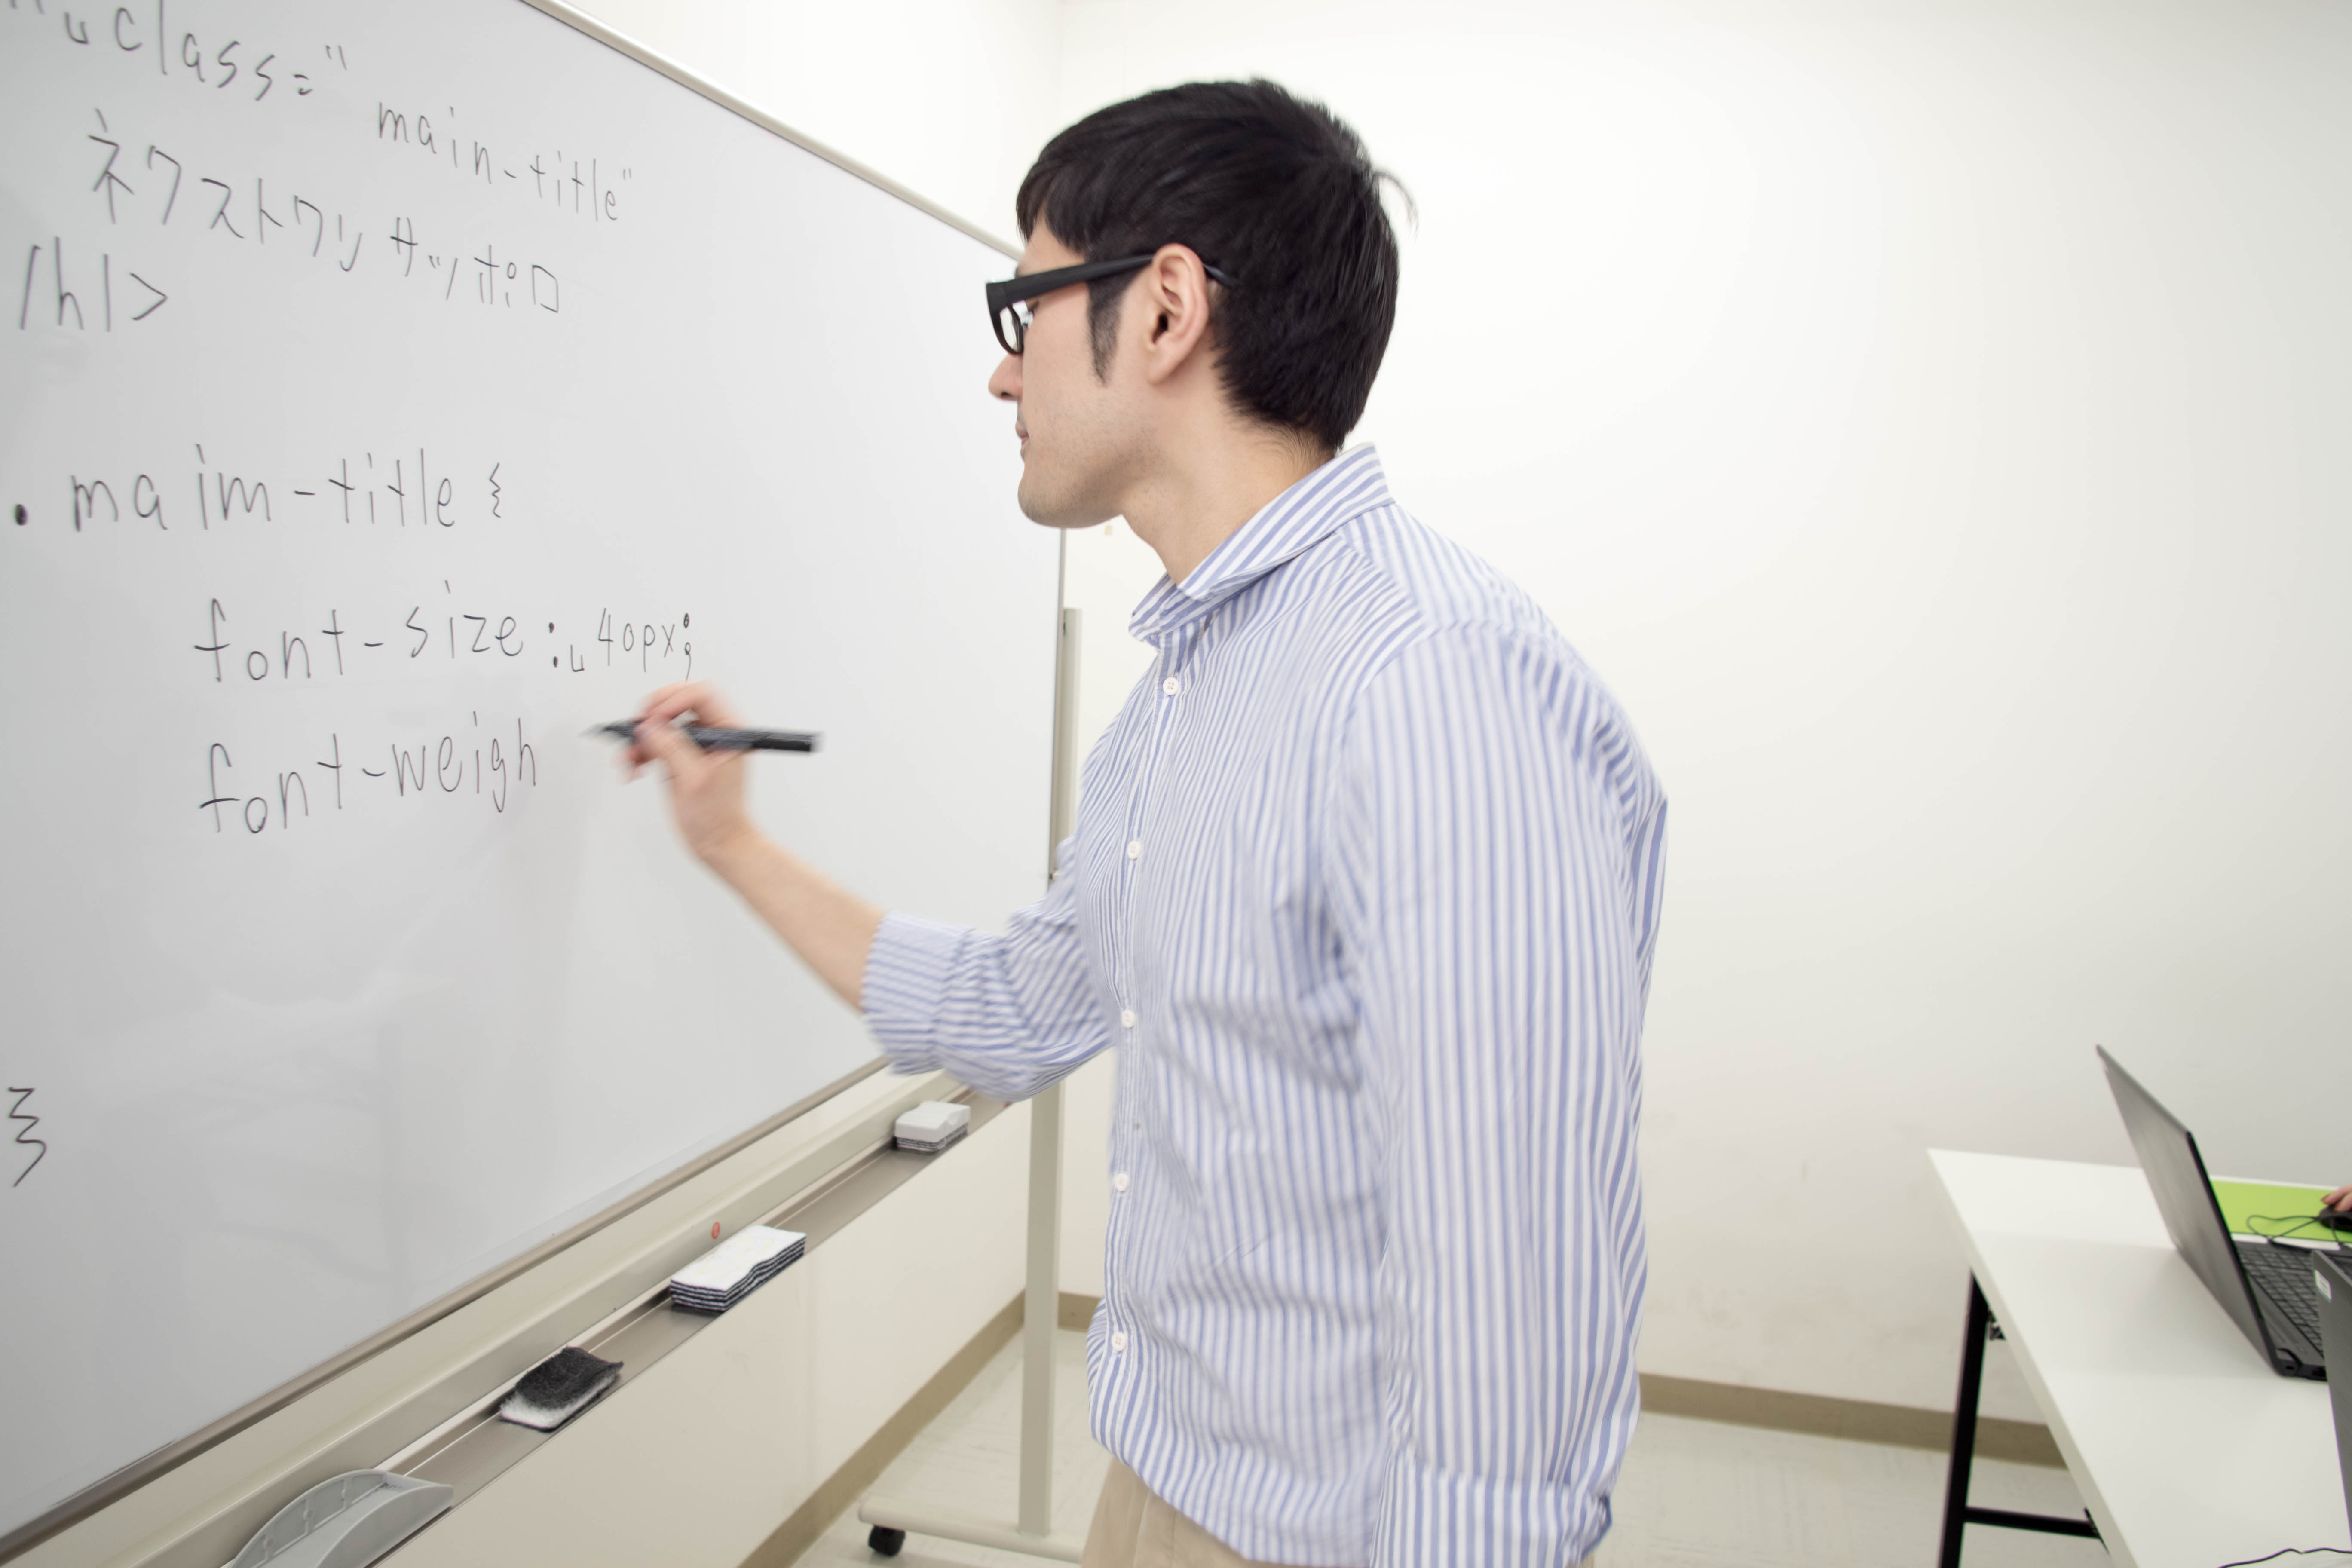 "␣class="main-title"
ネクストワリサッポロ
/h1>
.maim-title {
font-size:␣40px;
font-weigh
}